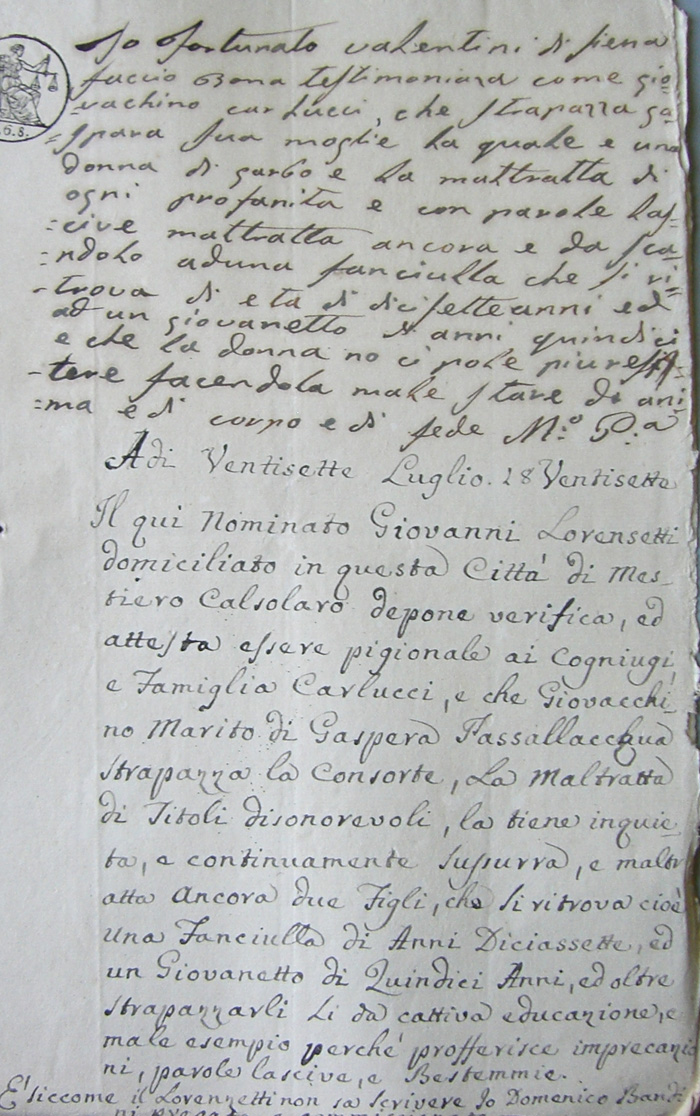 Io fortunato valentini di siena
faccio Bona testimonianza come gio
vachino carlucci, che strapazza ga=
=spara sua moglie la quale e una
donna di garbo e la maltratta di
ogni profanita e con parole las=
=cive maltratta ancora e da sca
=ndolo aduna fanciulla che si ri=
=trova di eta di dicisette anni ed
ad un giovanetto anni quindici
e che la donna no ci pole piu resis=
=tere facendola male stare di ani
=ma e di corpo e di fede M.º P.ª
Adi Ventisette Luglio. 18 Ventisette
Il qui Nominato Giovanni Lorensetti
domiciliato in questa Città di Mes
tiero Calsolaro depone verifica, ed
attesta essere pigionale ai Cogniugi
e Famiglia Carlucci, e che Giovacchi
no Marito di Gaspera Fassallacchua
strapazza la Consorte, La Maltratta
di Titoli disonorevoli, la tiene inquie
ta, e continuamente sussurra, e maltr
atta Ancora due Figli, che si ritrova cioè
una Fanciulla di Anni Diciassette, ed
un Giovanetto di Quindici Anni, ed oltre
strapazzarli Li da cattiva educazione, e
male esempio perché profferisce imprecazio
ni, parole lascive, e Bestemmie.
E' siccome il Lorenzetti non sa scrivere Io Domenico Bandi
6.8.